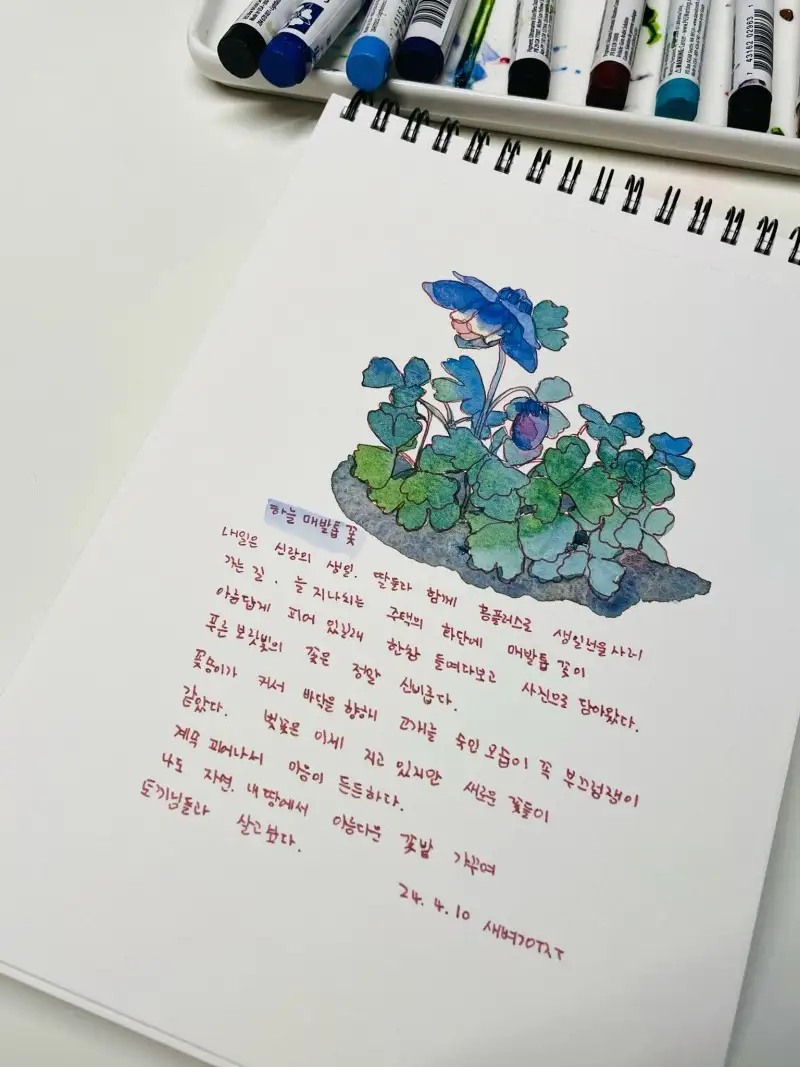 하늘 매발톱 꽃
내일은 신랑의 생일. 딸들과 함께 홈플러스로 생일선물사러
가는 길. 늘 지나치는 주택의 화단에 매발톱 꽃이
아름답게 피어 있길래 한참 들여다보고 사진으로 담아왔다.
푸른 보랏빛의 꽃은 정말 신비롭다.
꽃송이가 커서 바닥을 향해 고개를 숙인 모습이 꼭 부끄럼쟁이
같았다. 벚꽃은 이제 지고 있지만 새로운 꽃들이
계속 피어나서 마음이 든든하다.
나도 자연. 내 땅에서 아름다운 꽃밭 가꾸며
토끼님들과 살고싶다.
24. 4. 10